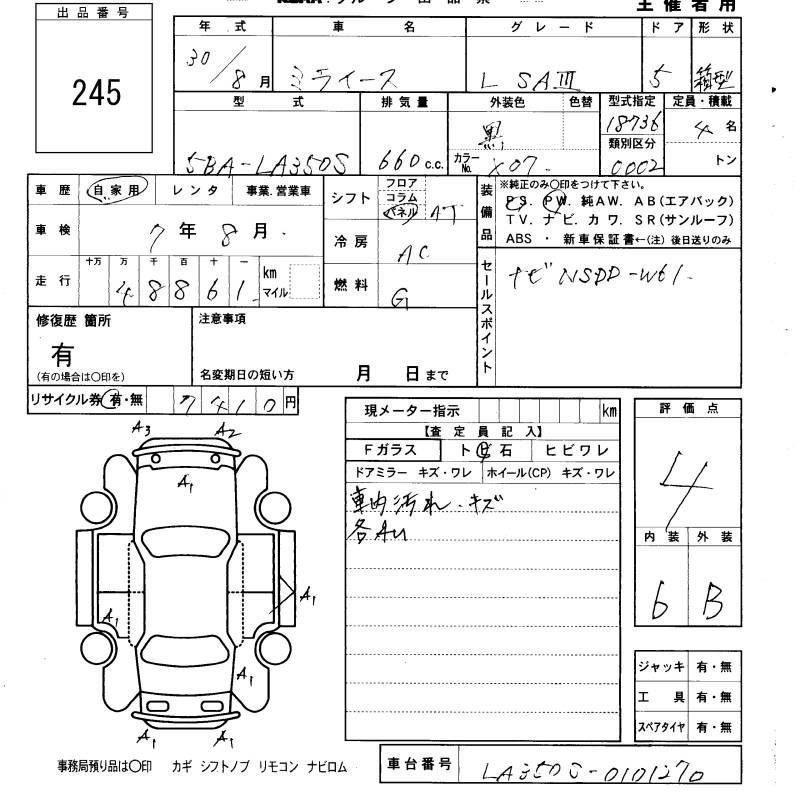 出品番号
245
主催者用
年式 車名 グレード ドア 形状
30/8月 ミライース L SAⅢ 5 箱型
型式 排気量 外装色 色替 型式指定 定員・積載
18736 4名
類別区分
5BA-LA350S 660c.c. 黒 カラーNo. X07. 0002 トン
車歴 自家用 レンタ 事業.営業車
車検 7年8月.
走行 十万 万 千 百 十 一
48861. km マイル
シフト フロア コラム パネル AT
冷房 AC
燃料 G
装備品
※純正のみ○印をつけて下さい。
PS. PW. 純AW. AB(エアバック)
TV. ナビ. カワ. SR(サンルーフ)
ABS ・ 新車保証書←(注) 後日送りのみ
セールスポイント
ナビ NSDD-W61.
修復歴 箇所
有
(有の場合は○印を)
注意事項
名変期日の短い方 月 日まで
リサイクル券 有・無 7410円
現メーター指示 km
【査定員記入】
Fガラス ト 石 ヒビワレ
ドアミラー キズ・ワレ ホイール(CP) キズ・ワレ
車内汚れ.キズ
各AU
評価点
4
内装 外装
6 B
A3 A2
A1
A1 A1
A1
A1 A1
ジャッキ 有・無
工具 有・無
スペアタイヤ 有・無
事務局預り品は○印 カギ シフトノブ リモコン ナビロム
車台番号 LA350S-0101270